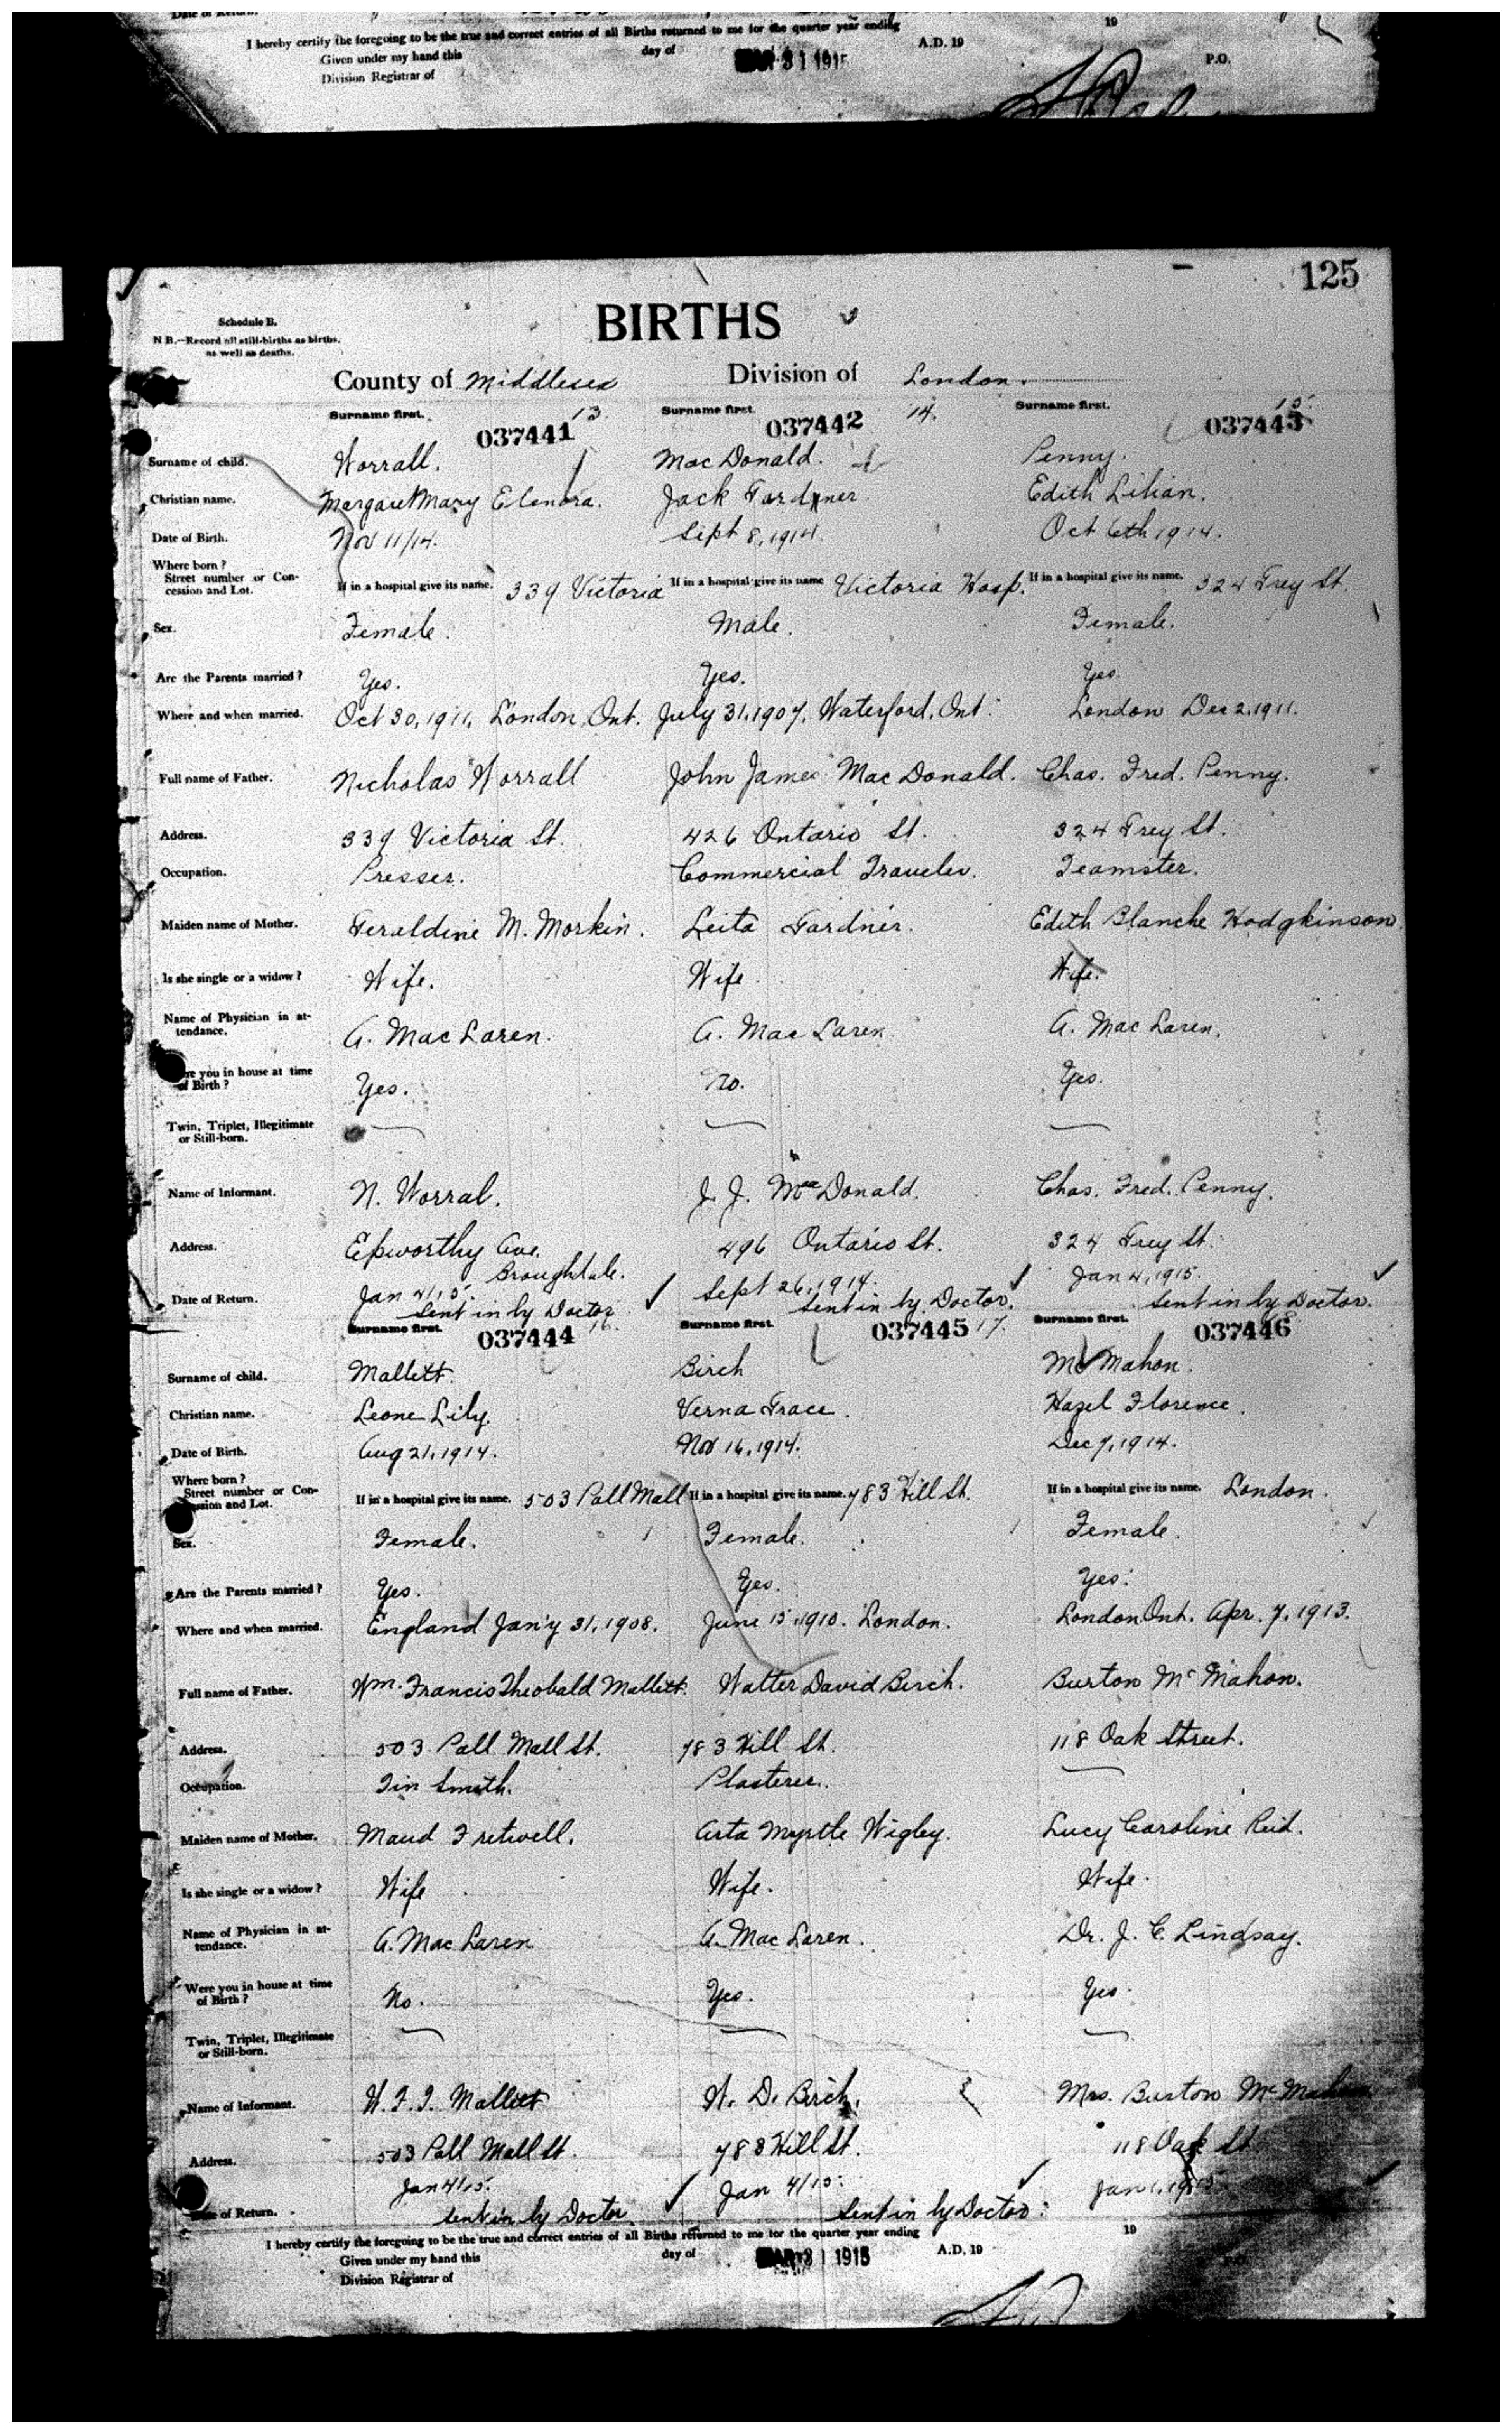 I hereby certify the foregoing to be the true and correct entries of all Births returned to me for the quarter year ending 19
Given under my hand this day of MAR 31 1915 A.D. 19
Division Registrar of P.O.
125
Schedule B.
N.B.—Record all still-births as births, as well as deaths.
BIRTHS
County of Middlesex Division of London.
Surname first. 13. Surname first. 14. Surname first. 15.
037441 037442 037443
Surname of child. Worrall. MacDonald. Penny.
Christian name. Margaret Mary Elenora. Jack Gardner Edith Lilian.
Date of Birth. Nov 11/14. Sept 8, 1914 Oct 6th 1914.
Where born?
Street number or Concession and Lot. If in a hospital give its name. 339 Victoria If in a hospital give its name Victoria Hosp. If in a hospital give its name. 324 Grey St.
Sex. Female. Male. Female.
Are the Parents married? Yes. Yes. Yes.
Where and when married. Oct 30, 1911, London, Ont. July 31, 1907, Waterford, Ont. London Dec 2, 1911.
Full name of Father. Nicholas Worrall John James MacDonald. Chas. Fred. Penny.
Address. 339 Victoria St. 426 Ontario St. 324 Grey St.
Occupation. Presser. Commercial Traveler. Teamster.
Maiden name of Mother. Geraldine M. Morkin. Leita Gardner. Edith Blanche Hodgkinson.
Is she single or a widow? Wife. Wife. Wife.
Name of Physician in attendance. A. MacLaren. A. MacLaren A. MacLaren.
Were you in house at time of Birth? Yes. No. Yes.
Twin, Triplet, Illegitimate or Still-born. — — —
Name of Informant. N. Worral. J. J. MacDonald. Chas. Fred. Penny.
Address. Epworthy Ave. Broughdale. 496 Ontario St. 324 Grey St.
Date of Return. Jan 4/15. Sent in by Doctor ✓ Sept 26, 1914. Sent in by Doctor. ✓ Jan 4, 1915. Sent in by Doctor. ✓
Surname first. 16. Surname first. 17. Surname first.
037444 037445 037446
Surname of child. Mallett. Birch McMahon.
Christian name. Leone Lily. Verna Grace. Hazel Florence.
Date of Birth. Aug 21, 1914. Nov 16, 1914. Dec 7, 1914.
Where born?
Street number or Concession and Lot. If in a hospital give its name. 503 Pall Mall If in a hospital give its name. 783 Hill St. If in a hospital give its name. London.
Sex. Female. Female. Female.
Are the Parents married? Yes. Yes. Yes.
Where and when married. England Jan'y 31, 1908. June 15, 1910. London. London Ont. Apr. 7, 1913.
Full name of Father. Wm. Francis Theobald Mallett. Walter David Birch. Burton McMahon.
Address. 503 Pall Mall St. 783 Hill St. 118 Oak Street.
Occupation. Tin Smith. Plasterer. —
Maiden name of Mother. Maud Fretwell. Arta Myrtle Wigley. Lucy Caroline Reid.
Is she single or a widow? Wife Wife. Wife.
Name of Physician in attendance. A. MacLaren A. MacLaren. Dr. J. C. Lindsay.
Were you in house at time of Birth? No. Yes. Yes.
Twin, Triplet, Illegitimate or Still-born. — — —
Name of Informant. W. F. T. Mallett W. D. Birch. Mrs. Burton McMahon
Address. 503 Pall Mall St. 783 Hill St. 118 Oak St
Date of Return. Jan 4/15. Sent in by Doctor. ✓ Jan 4/15. Sent in by Doctor. ✓ Jan 1, 1915 ✓
I hereby certify the foregoing to be the true and correct entries of all Births returned to me for the quarter year ending 19
Given under my hand this day of MAR 31 1915 A.D. 19
Division Registrar of P.O.